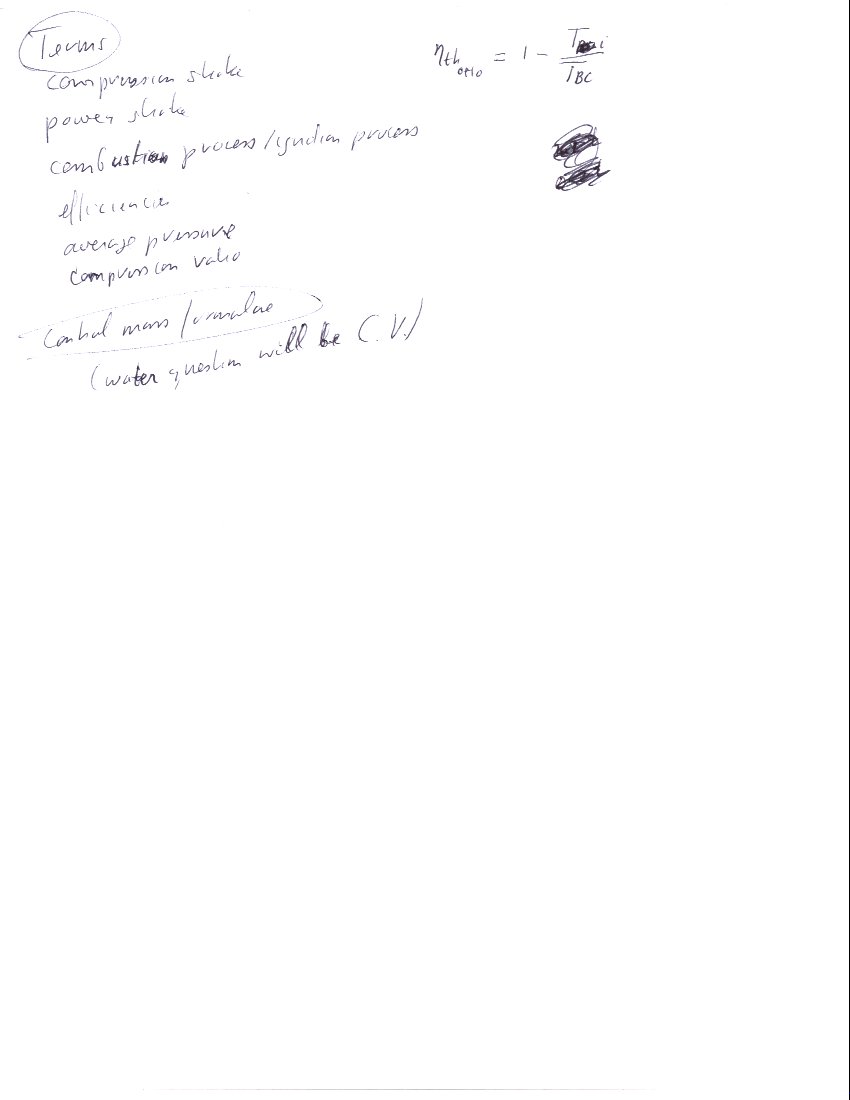 Terms
compression stroke
power stroke
combustion process/ignition process
efficiencies
average pressure
compression ratio
Control mass / volume
(water question will be C.V.)
ηth otto = 1 - T i / TBC